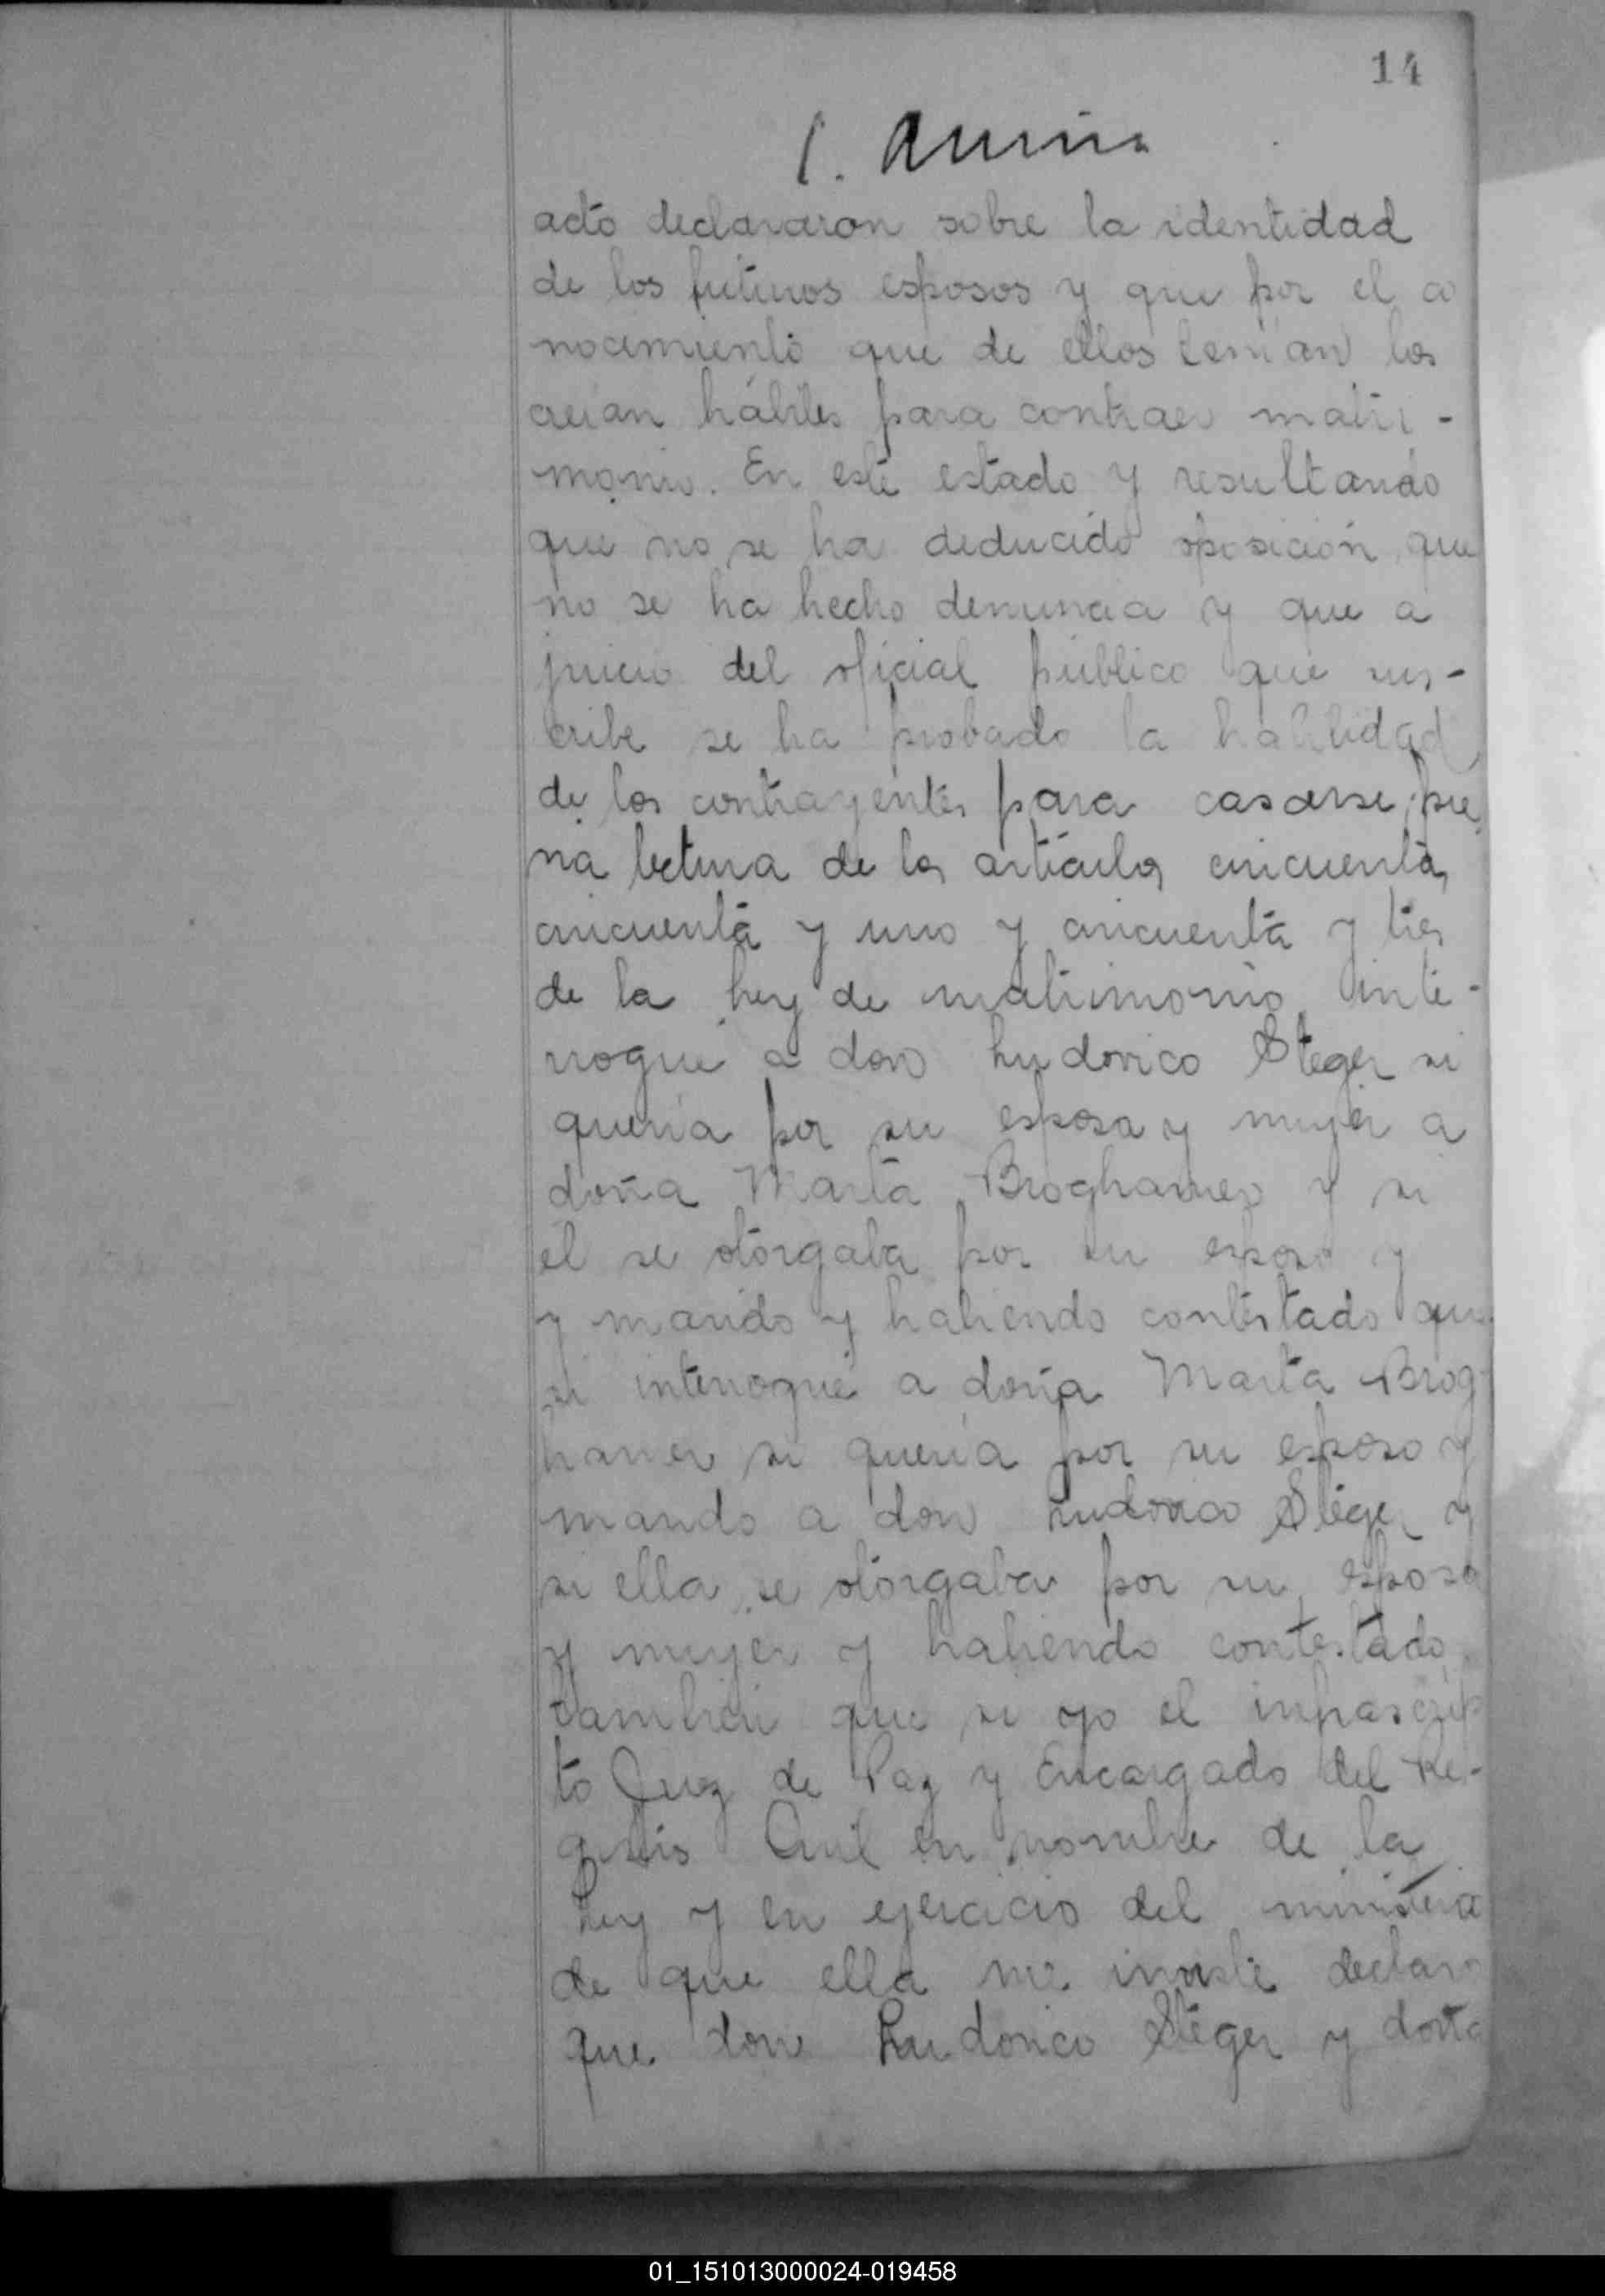 14
acto declararon sobre la identidad
de los futuros esposos y que por el co
nocimiento que de ellos tenian los
creian hábiles para contraer matri-
monio. En este estado y resultando
que no se ha deducido oposición, que
no se ha hecho denuncia y que a
juicio del oficial público que sus-
cribe se ha probado la habilidad
de los contrayentes para casarse, pre
via lectura de los artículos cincuenta,
cincuenta y uno y cincuenta y tres
de la Ley de matrimonio inte-
rrogué a don Ludovico Steger si
queria por su esposa y mujer a
doña Marta Broghamer y si
él se otorgaba por su esposo y
y marido y habiendo contestado que
si interrogué a doña Marta Brog-
hamer si queria por su esposo y
marido a don Ludovico Steger y
si ella se otorgaba por su esposa
y mujer y habiendo contestado
tambien que si yo el infrascrip
to Juez de Paz y Encargado del Re-
gistro Civil en nombre de la
Ley y en ejercicio del ministerio
de que ella me inviste declaro
que don Ludovico Steger y doña
01_151013000024-019458